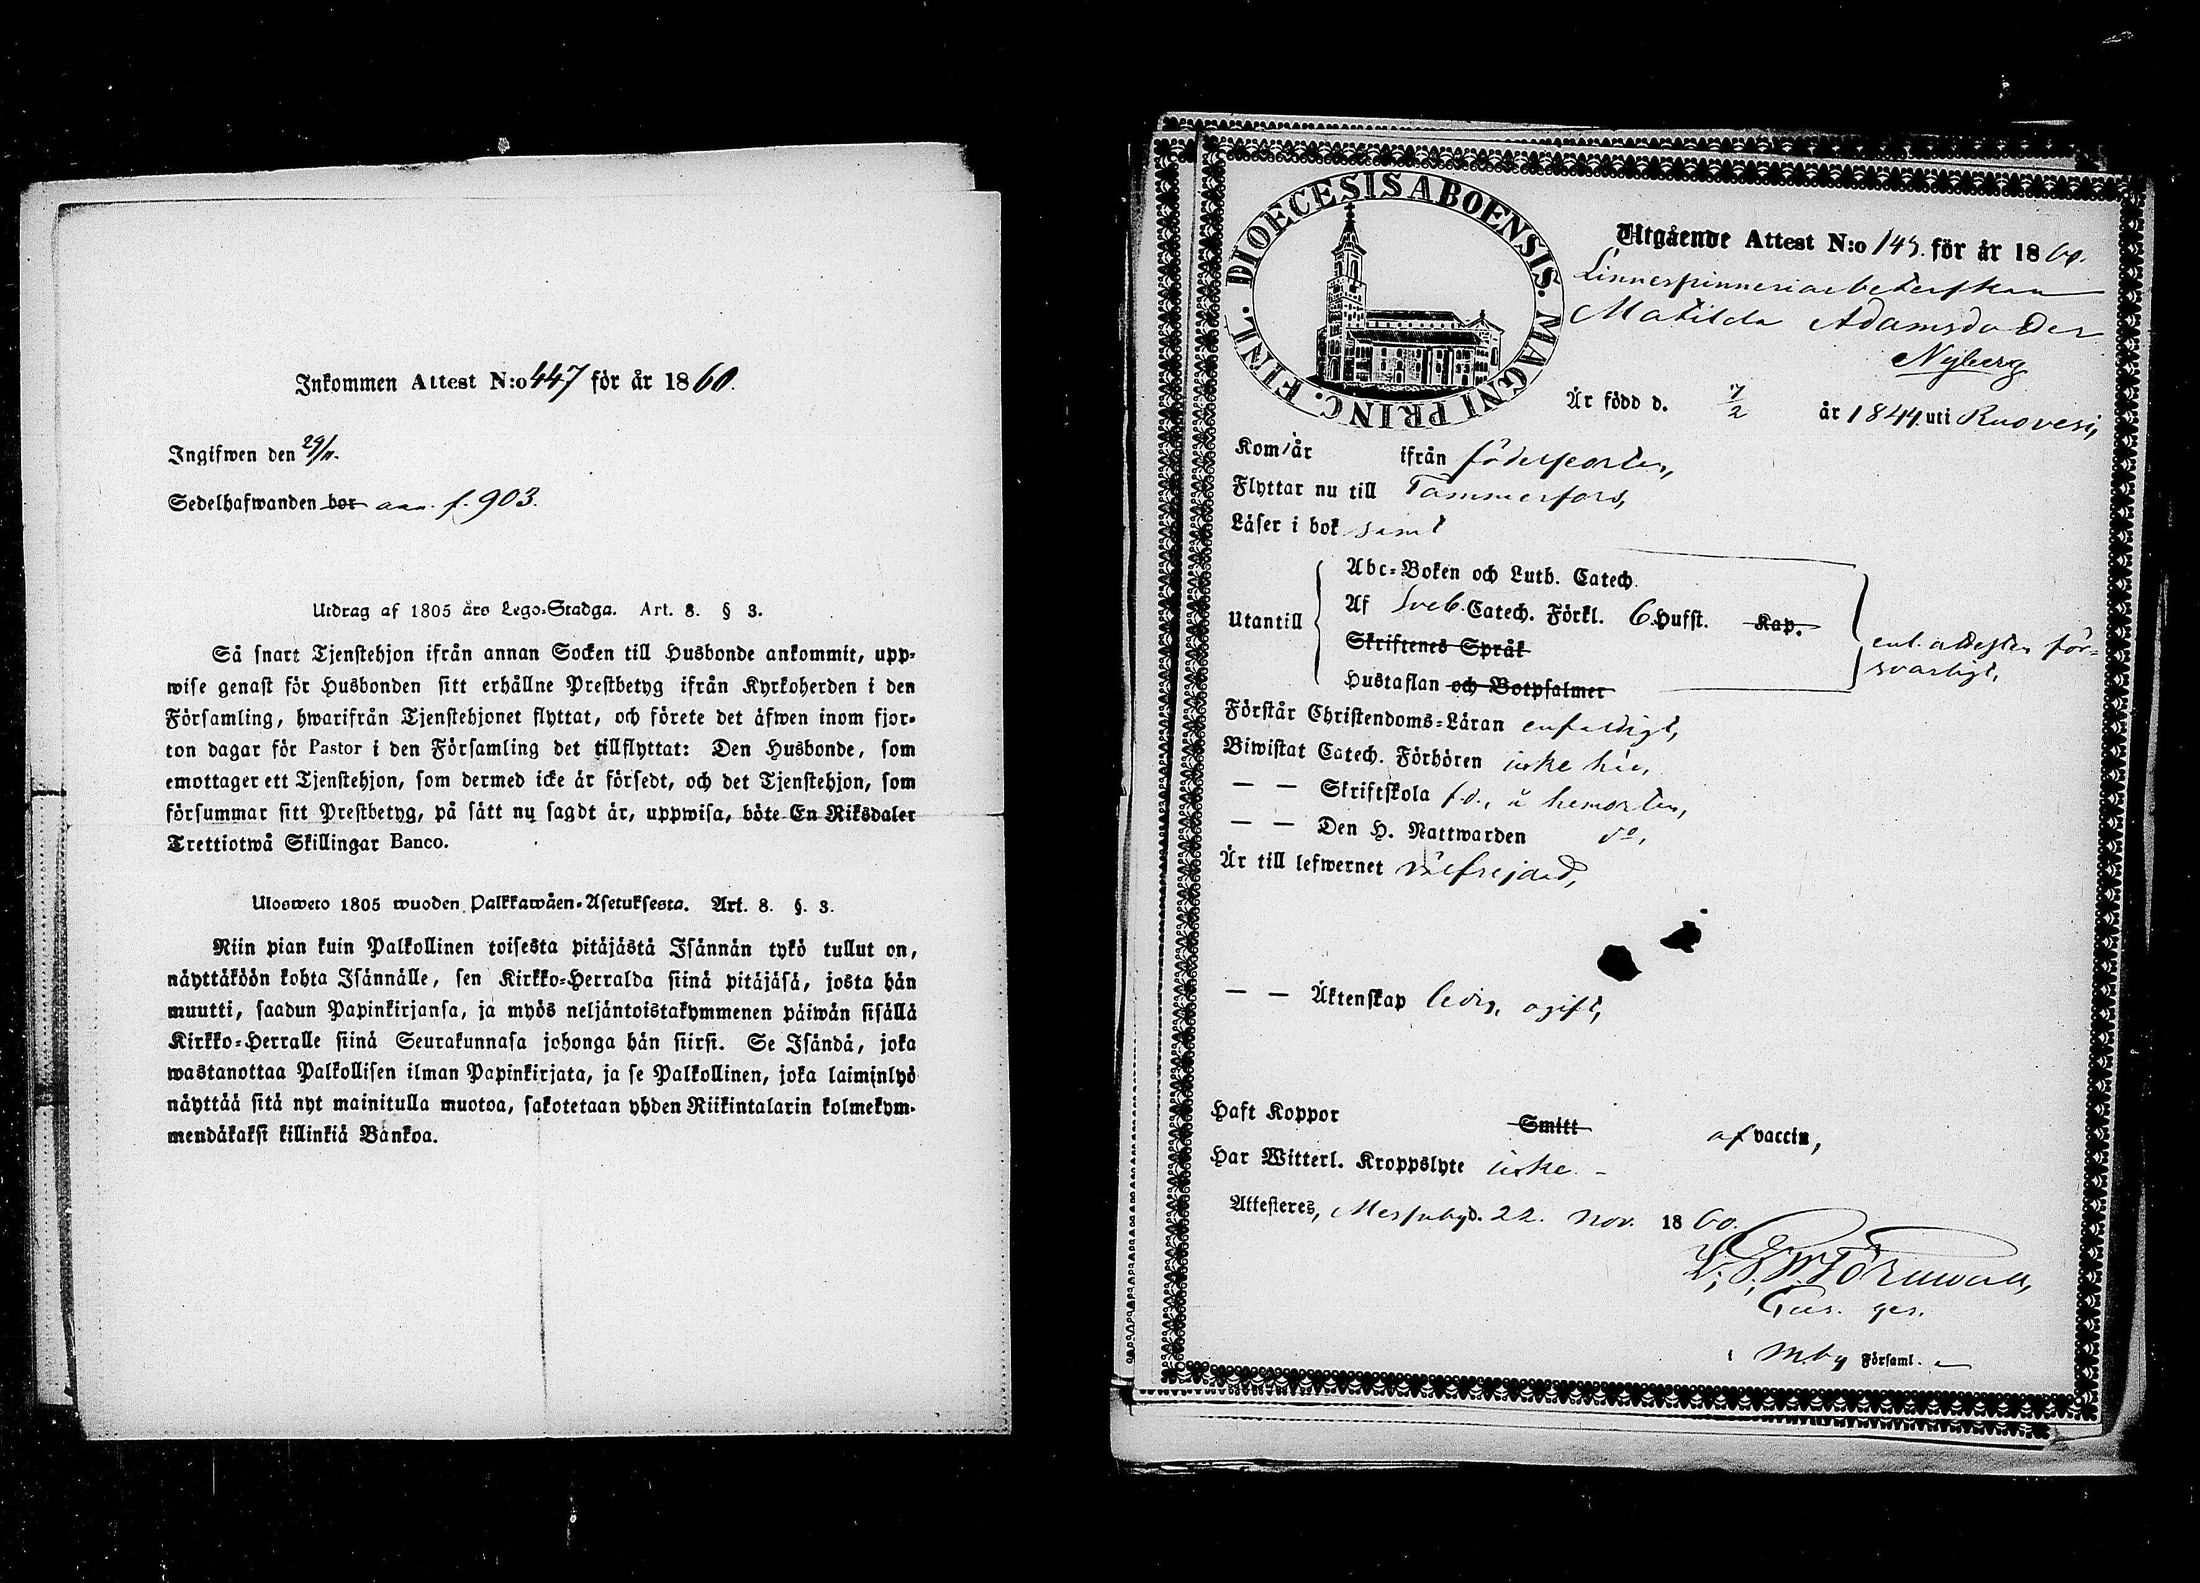 Inkommen Attest N:o 447 för år 1860.
Ingifwen den 29/11.
Sedelhafwanden bor ann. f. 903.
Utdrag af 1805 års Lego-Stadga. Art. 8. § 3.
Så snart Tjenstehjon ifrån annan Socken till Husbonde ankommit, upp-
wise genast för Husbonden sitt erhållne Prestbetyg ifrån Kyrkoherden i den
Församling, hwarifrån Tjenstehjonet flyttat, och förete det äfwen inom fjor-
ton dagar för Pastor i den Församling det tillflyttat: Den Husbonde, som
emottager ett Tjenstehjon, som dermed icke är försedt, och det Tjenstehjon, som
försummar sitt Prestbetyg, på sätt nu sagdt är, uppwisa, böte En Riksdaler
Trettiotwå Skillingar Banco.
Ulosweto 1805 wuoden Palkkawäen-Asetuksesta. Art. 8. §. 3.
Niin pian kuin Palkollinen toisesta pitäjästä Isännän tykö tullut on,
näyttäköön kohta Isännälle, sen Kirkko-Herralda siinä pitäjäsä, josta hän
muutti, saadun Papinkirjansa, ja myös neljäntoistakymmenen päiwän sisällä
Kirkko-Herralle siinä Seurakunnasa johonga hän siirsi. Se Isändä, joka
wastanottaa Palkollisen ilman Papinkirjata, ja se Palkollinen, joka laiminlyö
näyttää sitä nyt mainitulla muotoa, sakotetaan yhden Riikintalarin kolmekym-
mendäkaksi killinkiä Bankoa.
DIOECESIS ABOENSIS. MAGNI PRINC. FINL.
Utgående Attest N:o 143. för år 1860.
Linnespinneriarbeterskan
Matilda Adamsdotter
Nyberg
Är född d. 7/2 år 1844 uti Ruovesi,
Kom år ifrån födelseorten,
Flyttar nu till Tammerfors,
Läser i bok samt
Utantill
Abc-Boken och Luth. Catech.
Af Sveb. Catech. Förkl. 6 Hufst. Kap.
Skriftenes Språk
Hustaflan och Botpsalmer
enl. attesten för-
svarligt,
Förstår Christendoms-Läran enfaldigt,
Biwistat Catech. Förhören icke här,
— — Skriftskola d:o, i hemorten,
— — Den H. Nattwarden d:o,
Är till lefwernet välfrejdad,
— — Äktenskap ledig, ogift,
Haft Koppor Smitt af vaccin,
Har Witterl. Kroppslyte icke. -
Attesteres, Messuby d. 22. Nov. 1860.
i M.by Församl.